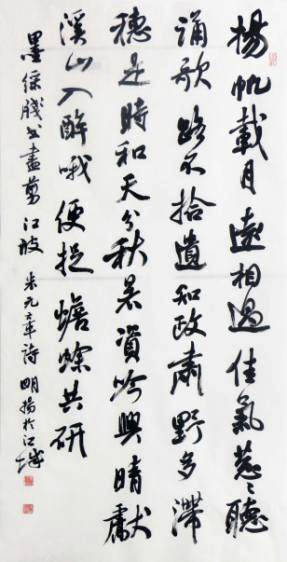 揚帆載月遠相過佳氣葱々聽
誦歌路不拾遺知政肅野多滯
穗是時和天分秋暑資吟興晴獻
溪山入醉哦便捉蟾蜍共研
墨綵牋書盡剪江波 米元章詩 明揚於江城